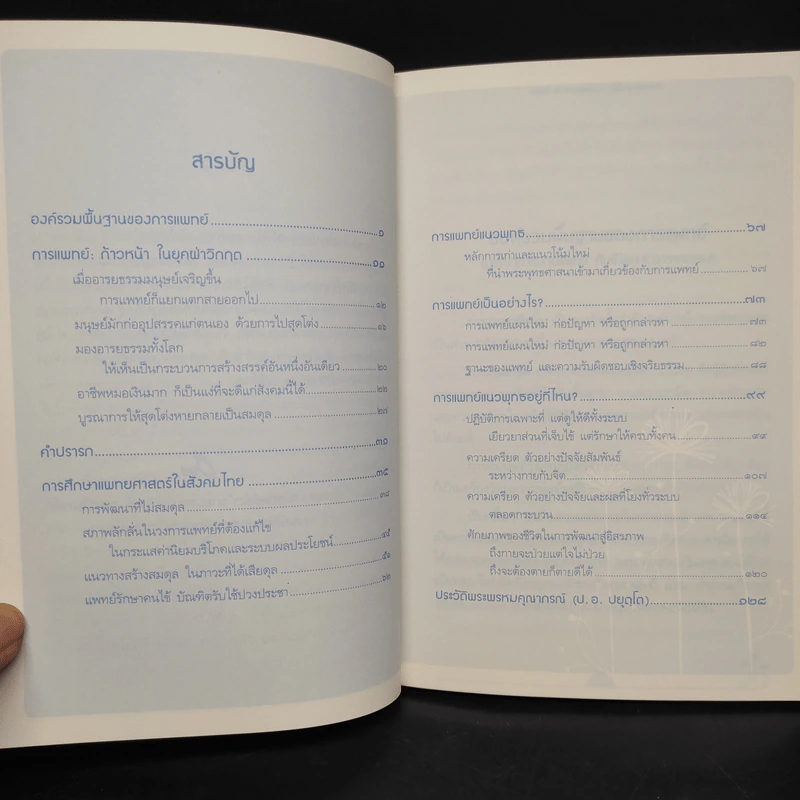 สารบัญ
องค์รวมพื้นฐานของการแพทย์..........๑
การแพทย์: ก้าวหน้า ในยุคฝ่าวิกฤต..........๑๑
เมื่ออารยธรรมมนุษย์เจริญขึ้น
การแพทย์ก็แยกแตกสายออกไป..........๑๒
มนุษย์มักก่ออุปสรรคแก่ตนเอง ด้วยการไปสุดโต่ง..........๑๖
มองอารยธรรมทั้งโลก
ให้เห็นเป็นกระบวนการสร้างสรรค์อันหนึ่งอันเดียว..........๒๐
อาชีพหมอเงินมาก ก็เป็นแง่ที่จะดีแก่สังคมนี้ได้..........๒๒
บูรณาการให้สุดโต่งหายกลายเป็นสมดุล..........๒๗
คำปรารภ..........๓๑
การศึกษาแพทยศาสตร์ในสังคมไทย..........๓๕
การพัฒนาที่ไม่สมดุล..........๓๘
สภาพลักลั่นในวงการแพทย์ที่ต้องแก้ไข
ในกระแสค่านิยมบริโภคและระบบผลประโยชน์..........๔๕
แนวทางสร้างสมดุล ในภาวะที่ได้เสียดุล..........๕๑
แพทย์รักษาคนไข้ บัณฑิตรับใช้ปวงประชา..........๖๒
การแพทย์แนวพุทธ..........๖๗
หลักการเก่าและแนวโน้มใหม่
ที่นำพระพุทธศาสนาเข้ามาเกี่ยวข้องกับการแพทย์..........๖๗
การแพทย์เป็นอย่างไร?..........๗๓
การแพทย์แผนใหม่ ก่อปัญหา หรือถูกกล่าวหา..........๗๓
การแพทย์แผนใหม่ ก่อปัญหา หรือถูกกล่าวหา..........๘๒
ฐานะของแพทย์ และความรับผิดชอบเชิงจริยธรรม..........๘๘
การแพทย์แนวพุทธอยู่ที่ไหน?..........๙๙
ปฏิบัติการเฉพาะที่ แต่ดูให้ดีทั้งระบบ
เยียวยาส่วนที่เจ็บไข้ แต่รักษาให้ครบทั้งคน..........๙๙
ความเครียด ตัวอย่างปัจจัยสัมพันธ์
ระหว่างกายกับจิต..........๑๐๗
ความเครียด ตัวอย่างปัจจัยและผลที่โยงทั่วระบบ
ตลอดกระบวน..........๑๑๔
ศักยภาพของชีวิตในการพัฒนาสู่อิสรภาพ
ถึงกายจะป่วยแต่ใจไม่ป่วย
ถึงจะต้องตายก็ตายดีได้..........๑๒๐
ประวัติพระพรหมคุณาภรณ์ (ป.อ. ปยุตฺโต)..........๑๒๘